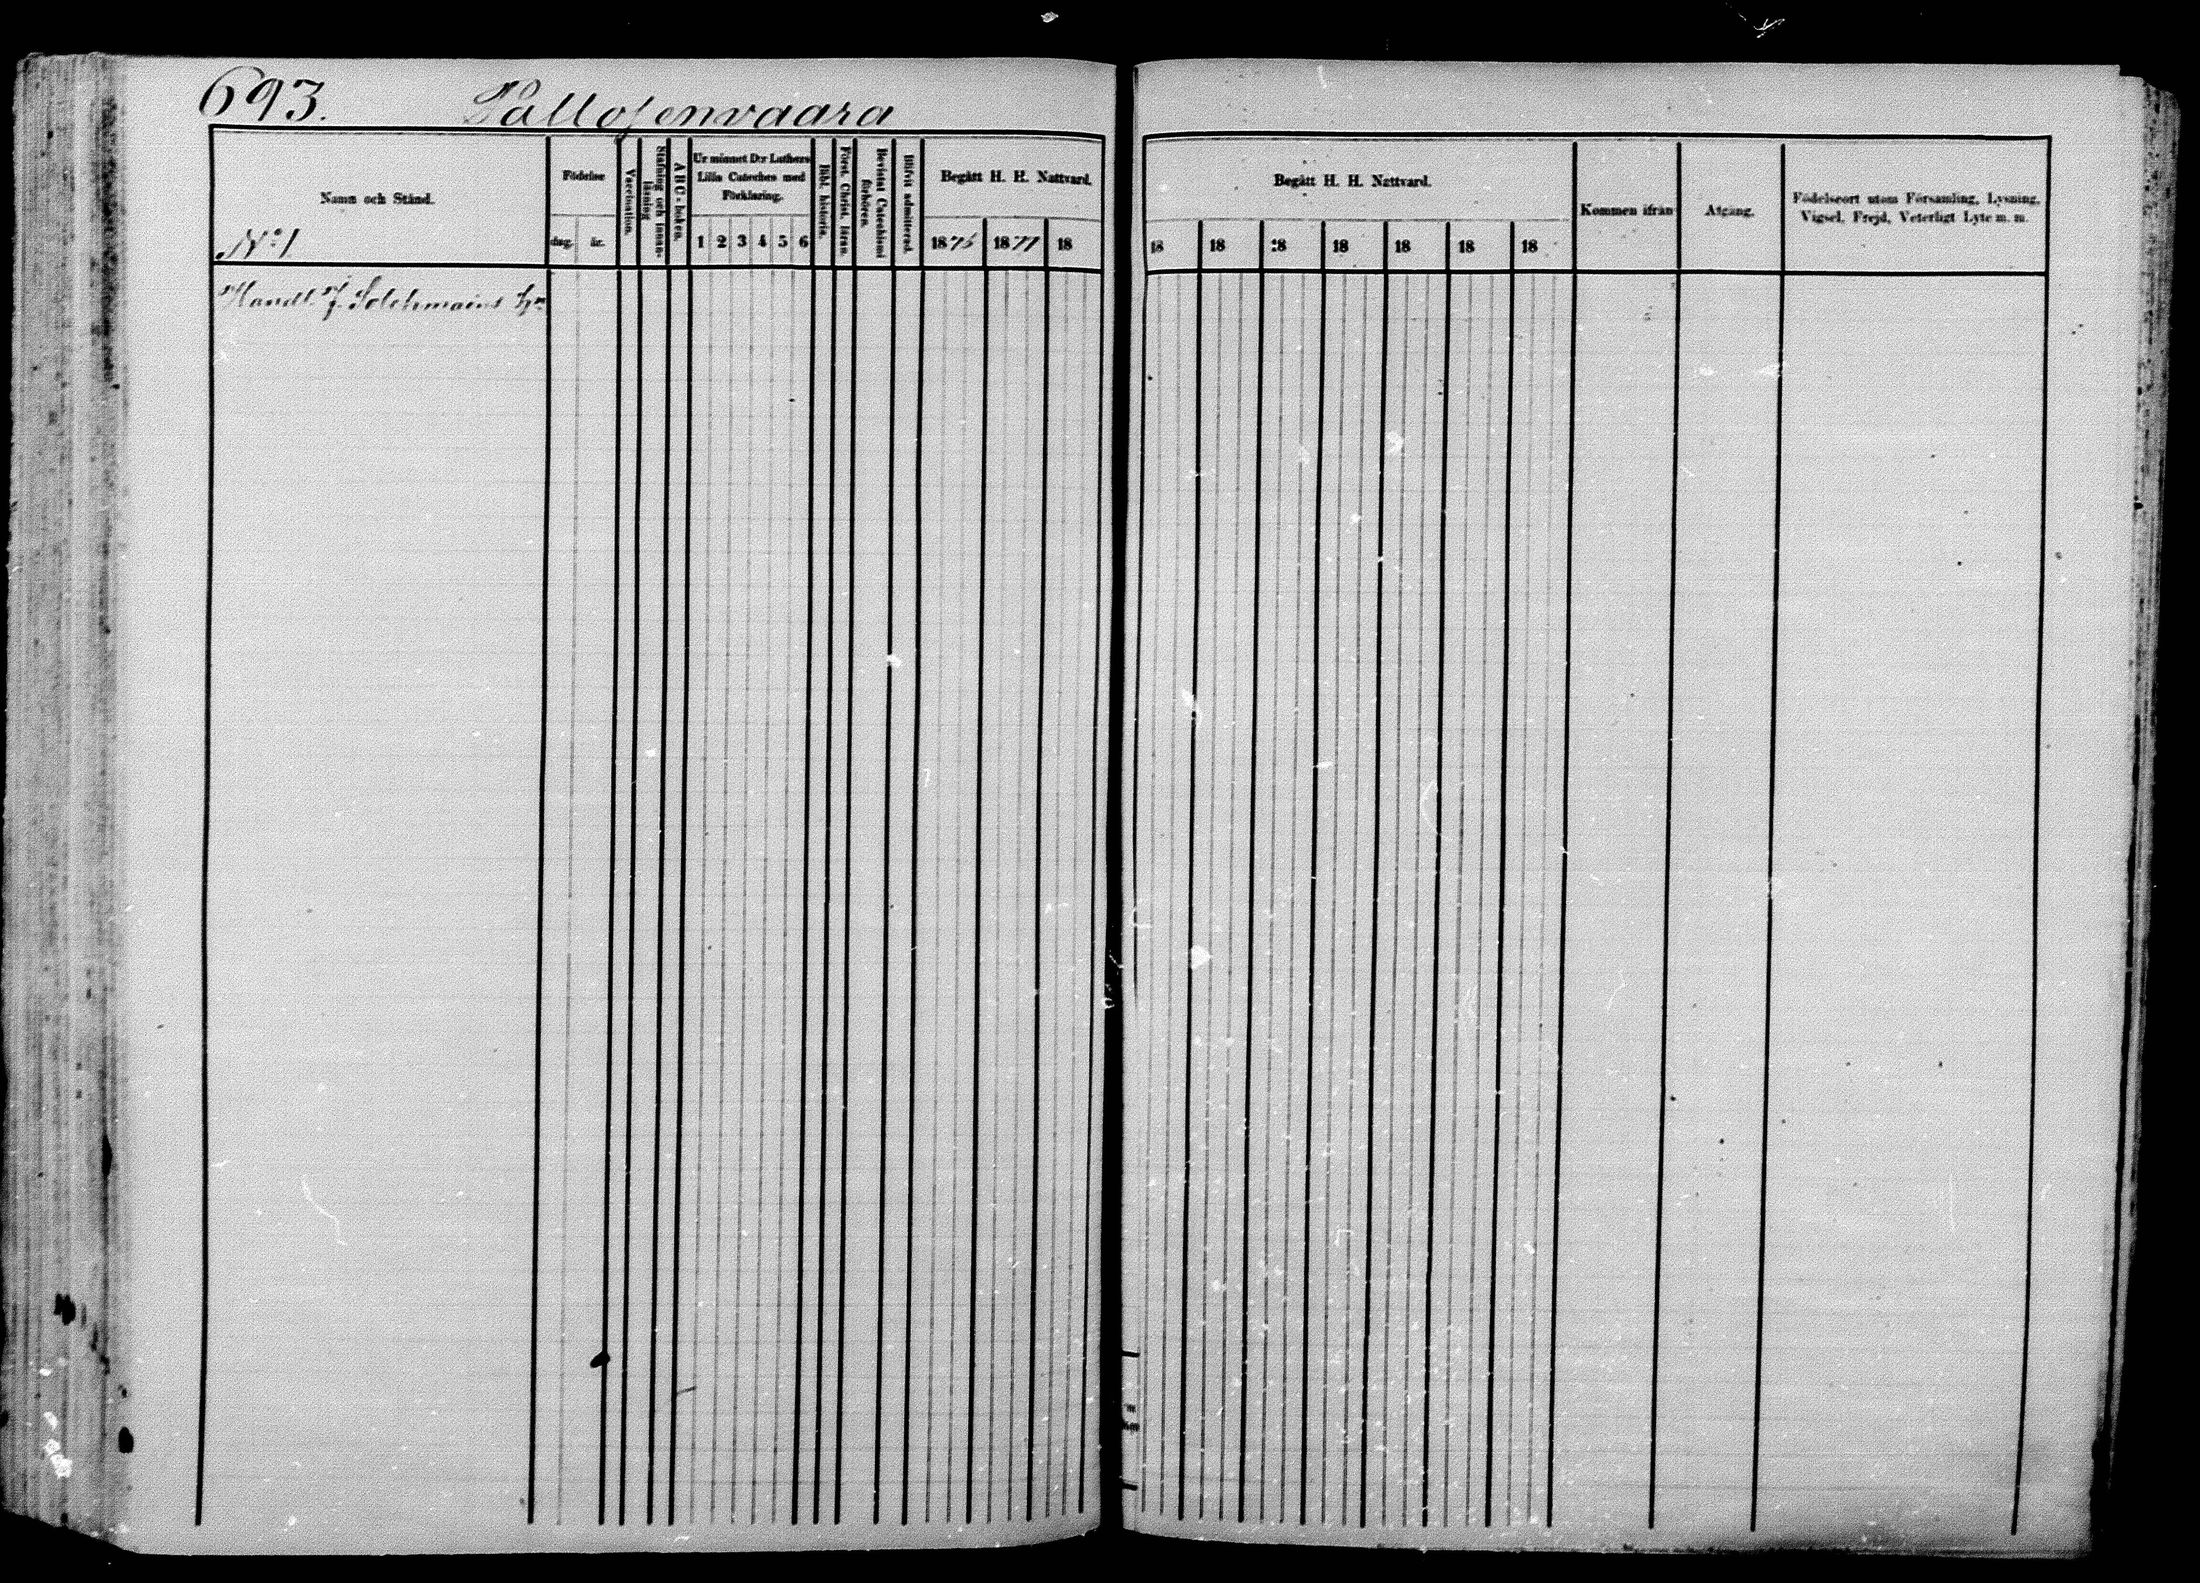 693.
Pallosenvaara
Namn och Stånd.
N:o 1
Födelse
dag.
år.
Vaccination.
Stafning och innan-
läsning
ABC-boken.
Ur minnet D:r Luthers
Lilla Cateches med
Förklaring.
1 2 3 4 5 6
Bibl. historia.
Först. Christ. läran.
Bevistat Catechismi
förhören.
Blifvit admitterad.
Begått H. H. Nattvard.
1875 1877 18
Begått H. H. Nattvard.
18 18 18 18 18 18 18
Kommen ifrån
Afgång.
Födelseort utom Församling, Lysning,
Vigsel, Frejd, Veterligt Lyte m. m.
Handl. J.